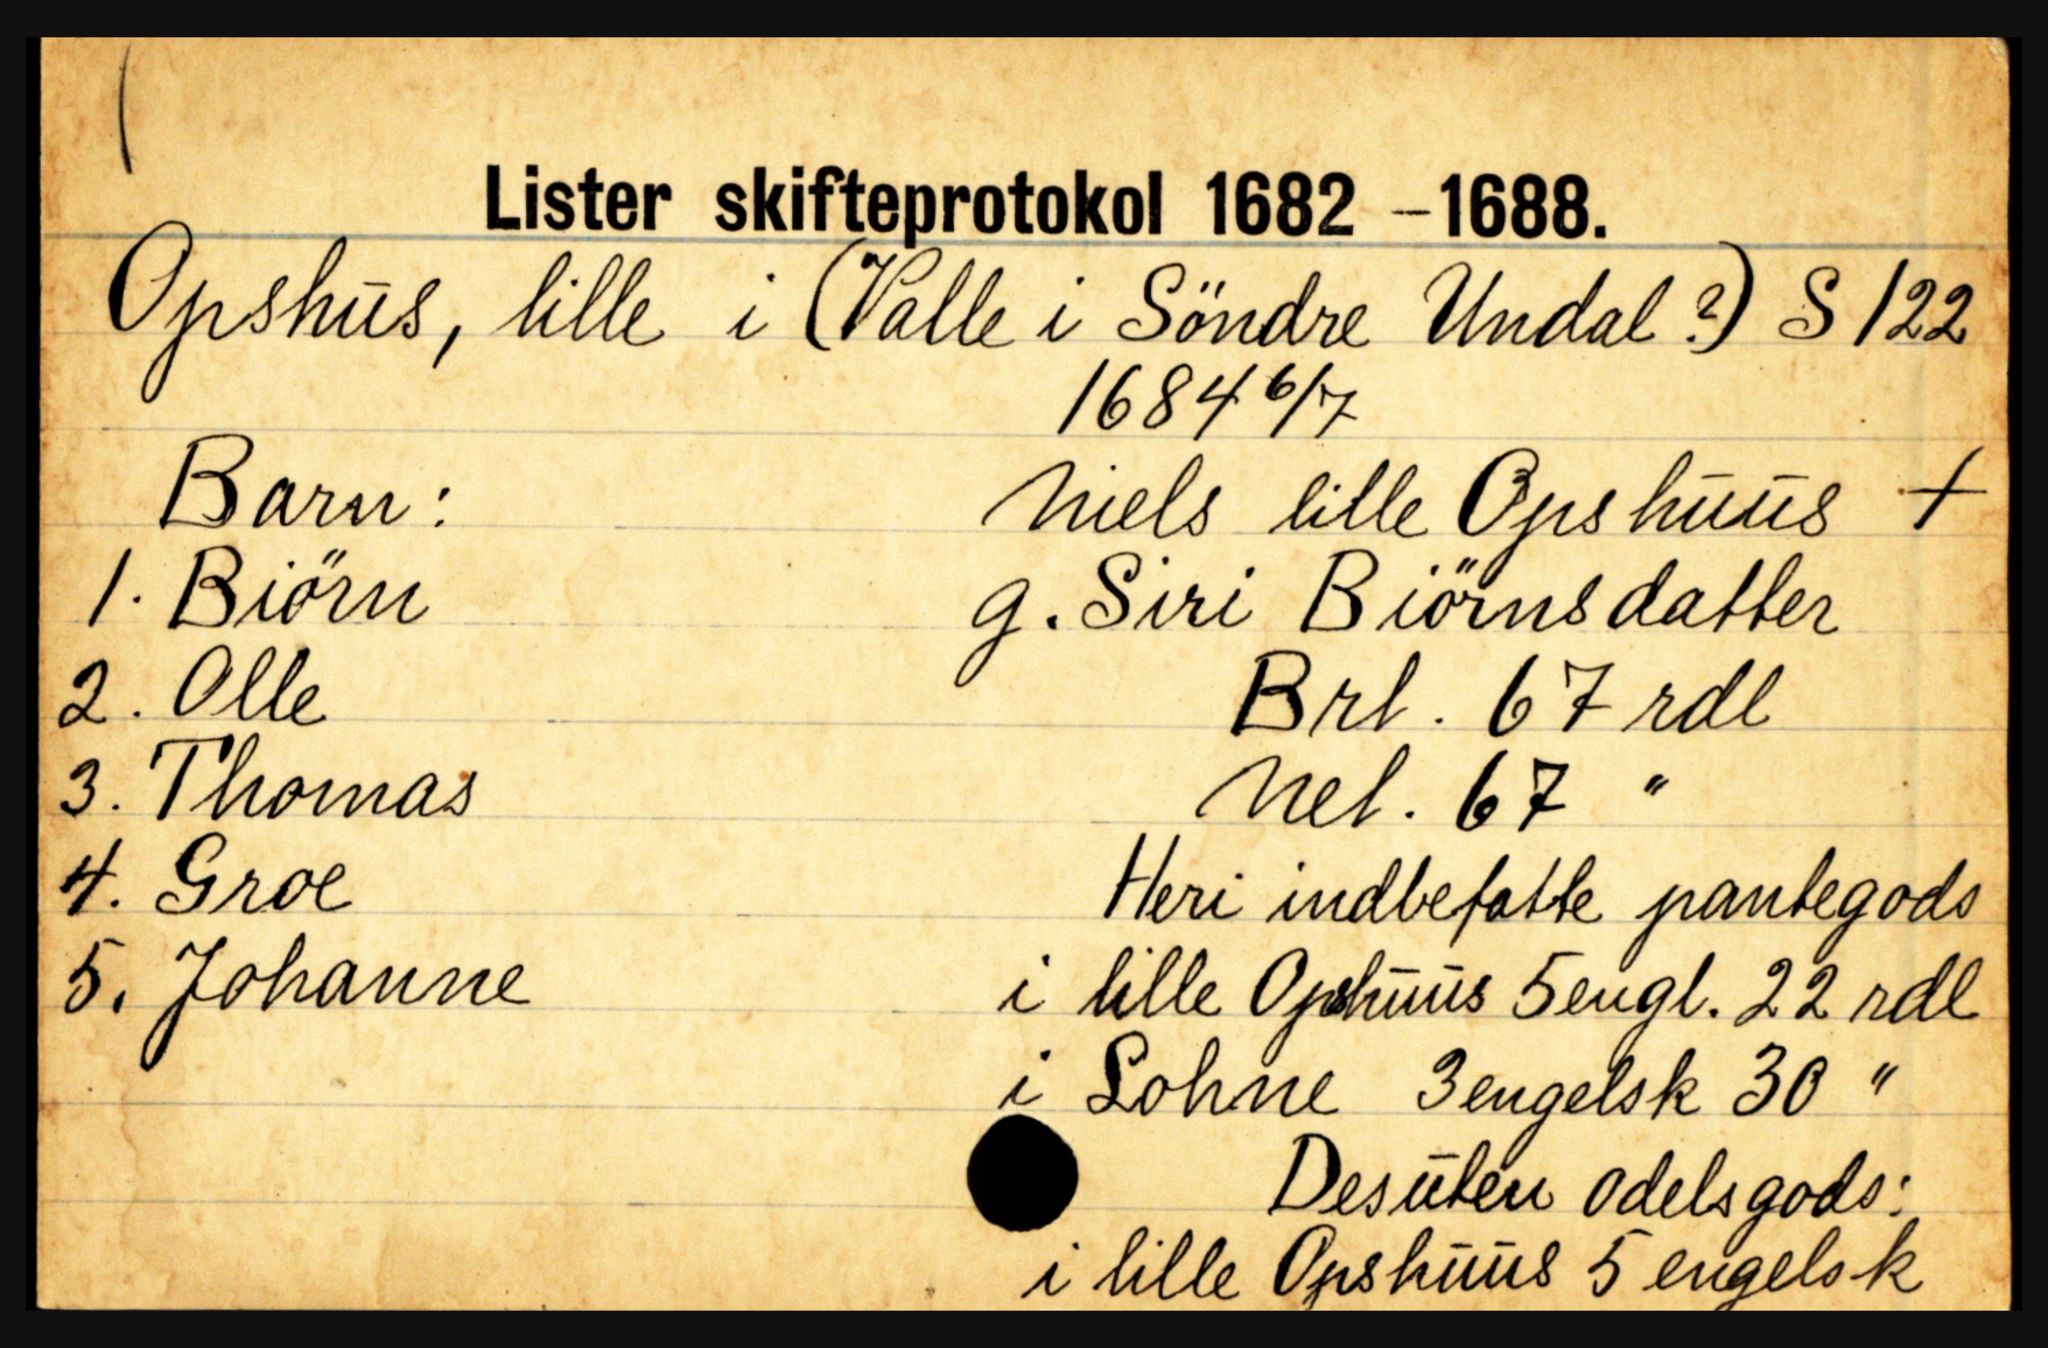 Lister skifteprotokol 1682 - 1688.
Opshus, lille i (Valle i Söndre Undal?) S 122
1684 6/7
Barn:
1. Biörn
2. Olle
3. Thomas
4. Groe
5. Johanne
Niels lille Opshuus +
g. Siri Biörnsdatter
Brl. 67 rdl
Nel. 67 "
Heri indbefatte pantegods
i lille Opshuus 5 engl. 22 rdl
i Lohne 3 engelsk 30 "
Desuten odelsgods:
i lille Opshuus 5 engelsk